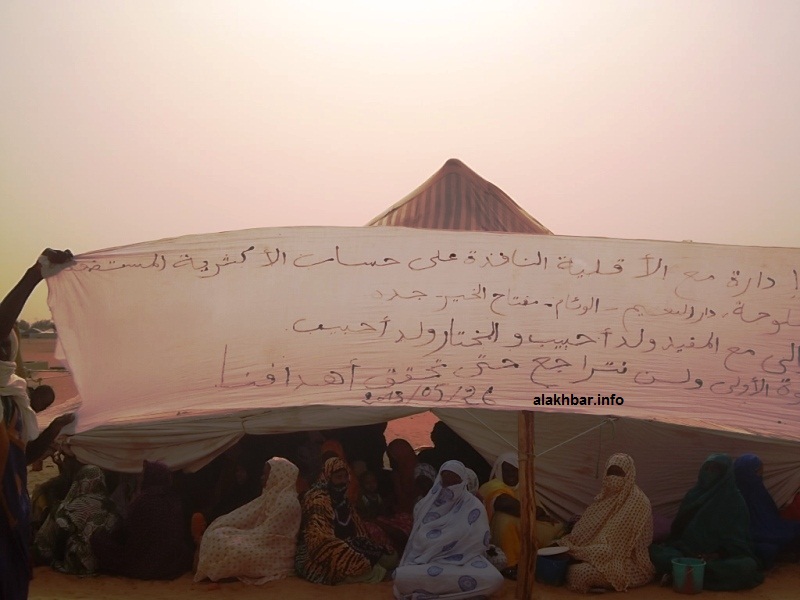 دارة مع الأقلية النافذة على حساب الأكثرية
دار النعيم - الوئام - مفتاح الخير جدده
مع المفيد ولد أحبيب والمختار ولد أحبيب
الأولى ولن نتراجع حتى تحقق أهدافنا
2013/05/26
alakhbar.info